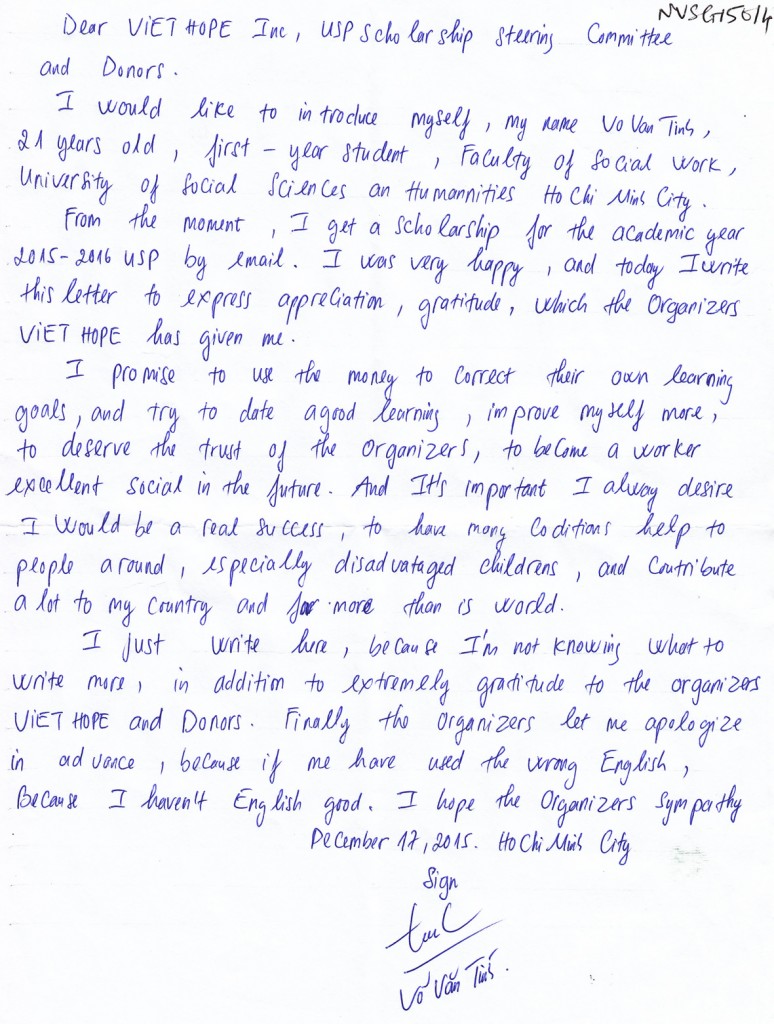 NVSG1504
Dear ViET HOPE Inc, USP scholarship steering Committee
and Donors.
I would like to introduce myself, my name Vo Van Tinh,
21 years old, first-year student, Faculty of Social Work,
University of Social Sciences an Humannities Ho Chi Minh City.
From the moment, I get a scholarship for the academic year
2015-2016 USP by email. I was very happy, and today I write
this letter to express appreciation, gratitude, which the Organizers
ViET HOPE has given me.
I promise to use the money to correct their own learning
goals, and try to date a good learning, improve myself more,
to deserve the trust of the Organizers, to become a worker
excellent social in the future. And It's important I alway desire
I would be a real success, to have many Coditions help to
people around, especially disadvataged childrens, and Contribute
a lot to my Country and for more than is world.
I just write here, because I'm not knowing what to
write more, in addition to extremely gratitude to the organizers
ViET HOPE and Donors. Finally the Organizers let me apologize
in advance, because if me have used the wrong English,
Because I haven't English good. I hope the Organizers Sympathy
December 17, 2015. Ho Chi Minh City
Sign
Võ Văn Tính.